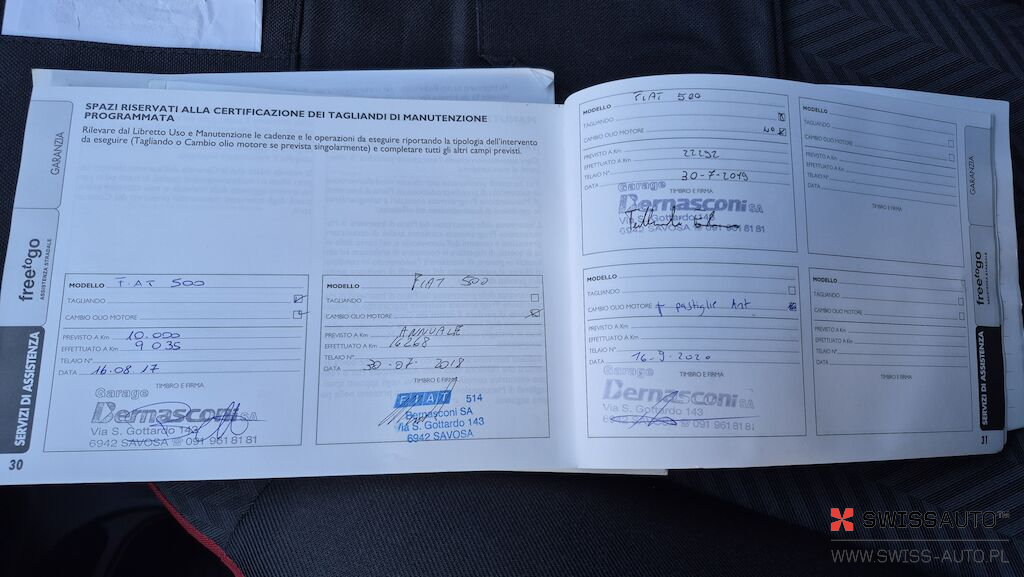 SPAZI RISERVATI ALLA CERTIFICAZIONE DEI TAGLIANDI DI MANUTENZIONE
PROGRAMMATA
Rilevare dal Libretto Uso e Manutenzione le cadenze e le operazioni da eseguire riportando la tipologia dell'intervento
da eseguire (Tagliando o Cambio olio motore se prevista singolarmente) e completare tutti gli altri campi previsti.
GARANZIA
freetogo
ASSISTENZA STRADALE
SERVIZI DI ASSISTENZA
MODELLO FIAT 500
TAGLIANDO
CAMBIO OLIO MOTORE
PREVISTO A Km 10.000
EFFETTUATO A Km 9035
TELAIO N°
DATA 16.08.17
TIMBRO E FIRMA
Garage
Bernasconi SA
Via S. Gottardo 143
6942 SAVOSA ☎ 091 961 81 81
MODELLO FIAT 500
TAGLIANDO
CAMBIO OLIO MOTORE
PREVISTO A Km ANNUALE
EFFETTUATO A Km 16268
TELAIO N°
DATA 30-07-2018
TIMBRO E FIRMA
FIAT 514
Bernasconi SA
Via S. Gottardo 143
6942 SAVOSA
30
MODELLO FIAT 500
TAGLIANDO
CAMBIO OLIO MOTORE NO
PREVISTO A Km
EFFETTUATO A Km 22292
TELAIO N°
DATA 30-7-2019
TIMBRO E FIRMA
Garage
Bernasconi SA
Via S. Gottardo 143
6942 SAVOSA ☎ 091 961 81 81
MODELLO
TAGLIANDO
CAMBIO OLIO MOTORE
PREVISTO A Km
EFFETTUATO A Km
TELAIO N°
DATA
TIMBRO E FIRMA
MODELLO
TAGLIANDO
CAMBIO OLIO MOTORE + pastiglie Ant.
PREVISTO A Km
EFFETTUATO A Km
TELAIO N°
DATA 16-9-2020
TIMBRO E FIRMA
Garage
Bernasconi SA
Via S. Gottardo 143
6942 SAVOSA ☎ 091 961 81 81
MODELLO
TAGLIANDO
CAMBIO OLIO MOTORE
PREVISTO A Km
EFFETTUATO A Km
TELAIO N°
DATA
TIMBRO E FIRMA
GARANZIA
freetogo
SERVIZI DI ASSISTENZA
31
SWISSAUTO
WWW.SWISS-AUTO.PL